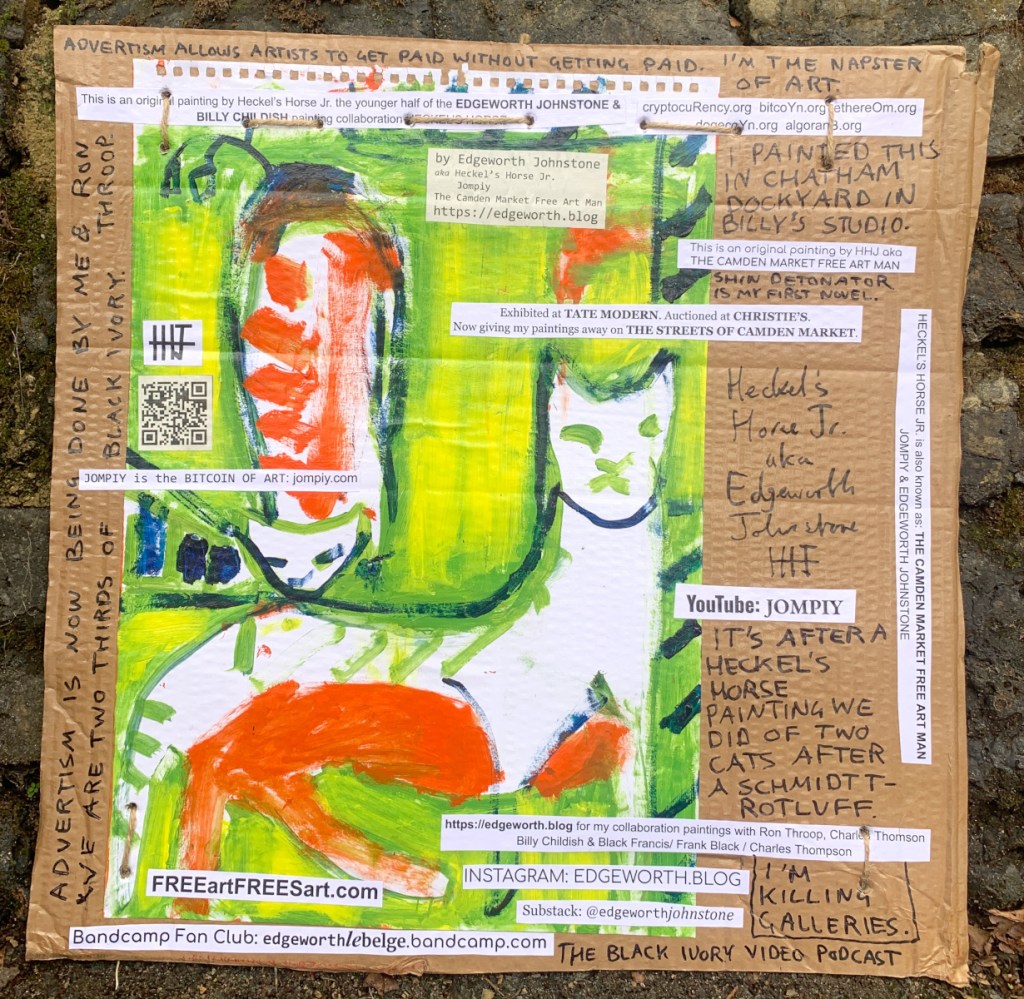 ADVERTISM ALLOWS ARTISTS TO GET PAID WITHOUT GETTING PAID.
I'M THE NAPSTER
OF ART.
This is an original painting by Heckel's Horse Jr. the younger half of the EDGEWORTH JOHNSTONE &
BILLY CHILDISH painting collaboration HECKEL'S HORSE
cryptocuRency.org bitcoYn.org ethereOm.org
dogecoYn.org algoranB.org
by Edgeworth Johnstone
aka Heckel's Horse Jr.
Jompiy
The Camden Market Free Art Man
https://edgeworth.blog
I PAINTED THIS
IN CHATHAM
DOCKYARD IN
BILLY'S STUDIO.
This is an original painting by HHJ aka
THE CAMDEN MARKET FREE ART MAN
SHIN DETONATOR
IS MY FIRST NOVEL.
Exhibited at TATE MODERN. Auctioned at CHRISTIE'S.
Now giving my paintings away on THE STREETS OF CAMDEN MARKET.
Heckel's
Horse Jr.
aka
Edgeworth
Johnstone
HECKEL'S HORSE JR. is also known as: THE CAMDEN MARKET FREE ART MAN
JOMPIY & EDGEWORTH JOHNSTONE
JOMPIY is the BITCOIN OF ART: jompiy.com
YouTube: JOMPIY
IT'S AFTER A
HECKEL'S
HORSE
PAINTING WE
DID OF TWO
CATS AFTER
A SCHMIDTT-
ROTLUFF.
ADVERTISM IS NOW BEING DONE BY ME & RON THROOP.
WE ARE TWO THIRDS OF BLACK IVORY.
https://edgeworth.blog for my collaboration paintings with Ron Throop, Charles Thomson
Billy Childish & Black Francis/ Frank Black / Charles Thompson
INSTAGRAM: EDGEWORTH.BLOG
FREEartFREESart.com
Substack: @edgeworthjohnstone
I'M
KILLING
GALLERIES.
Bandcamp Fan Club: edgeworthlebelge.bandcamp.com
THE BLACK IVORY VIDEO PODCAST